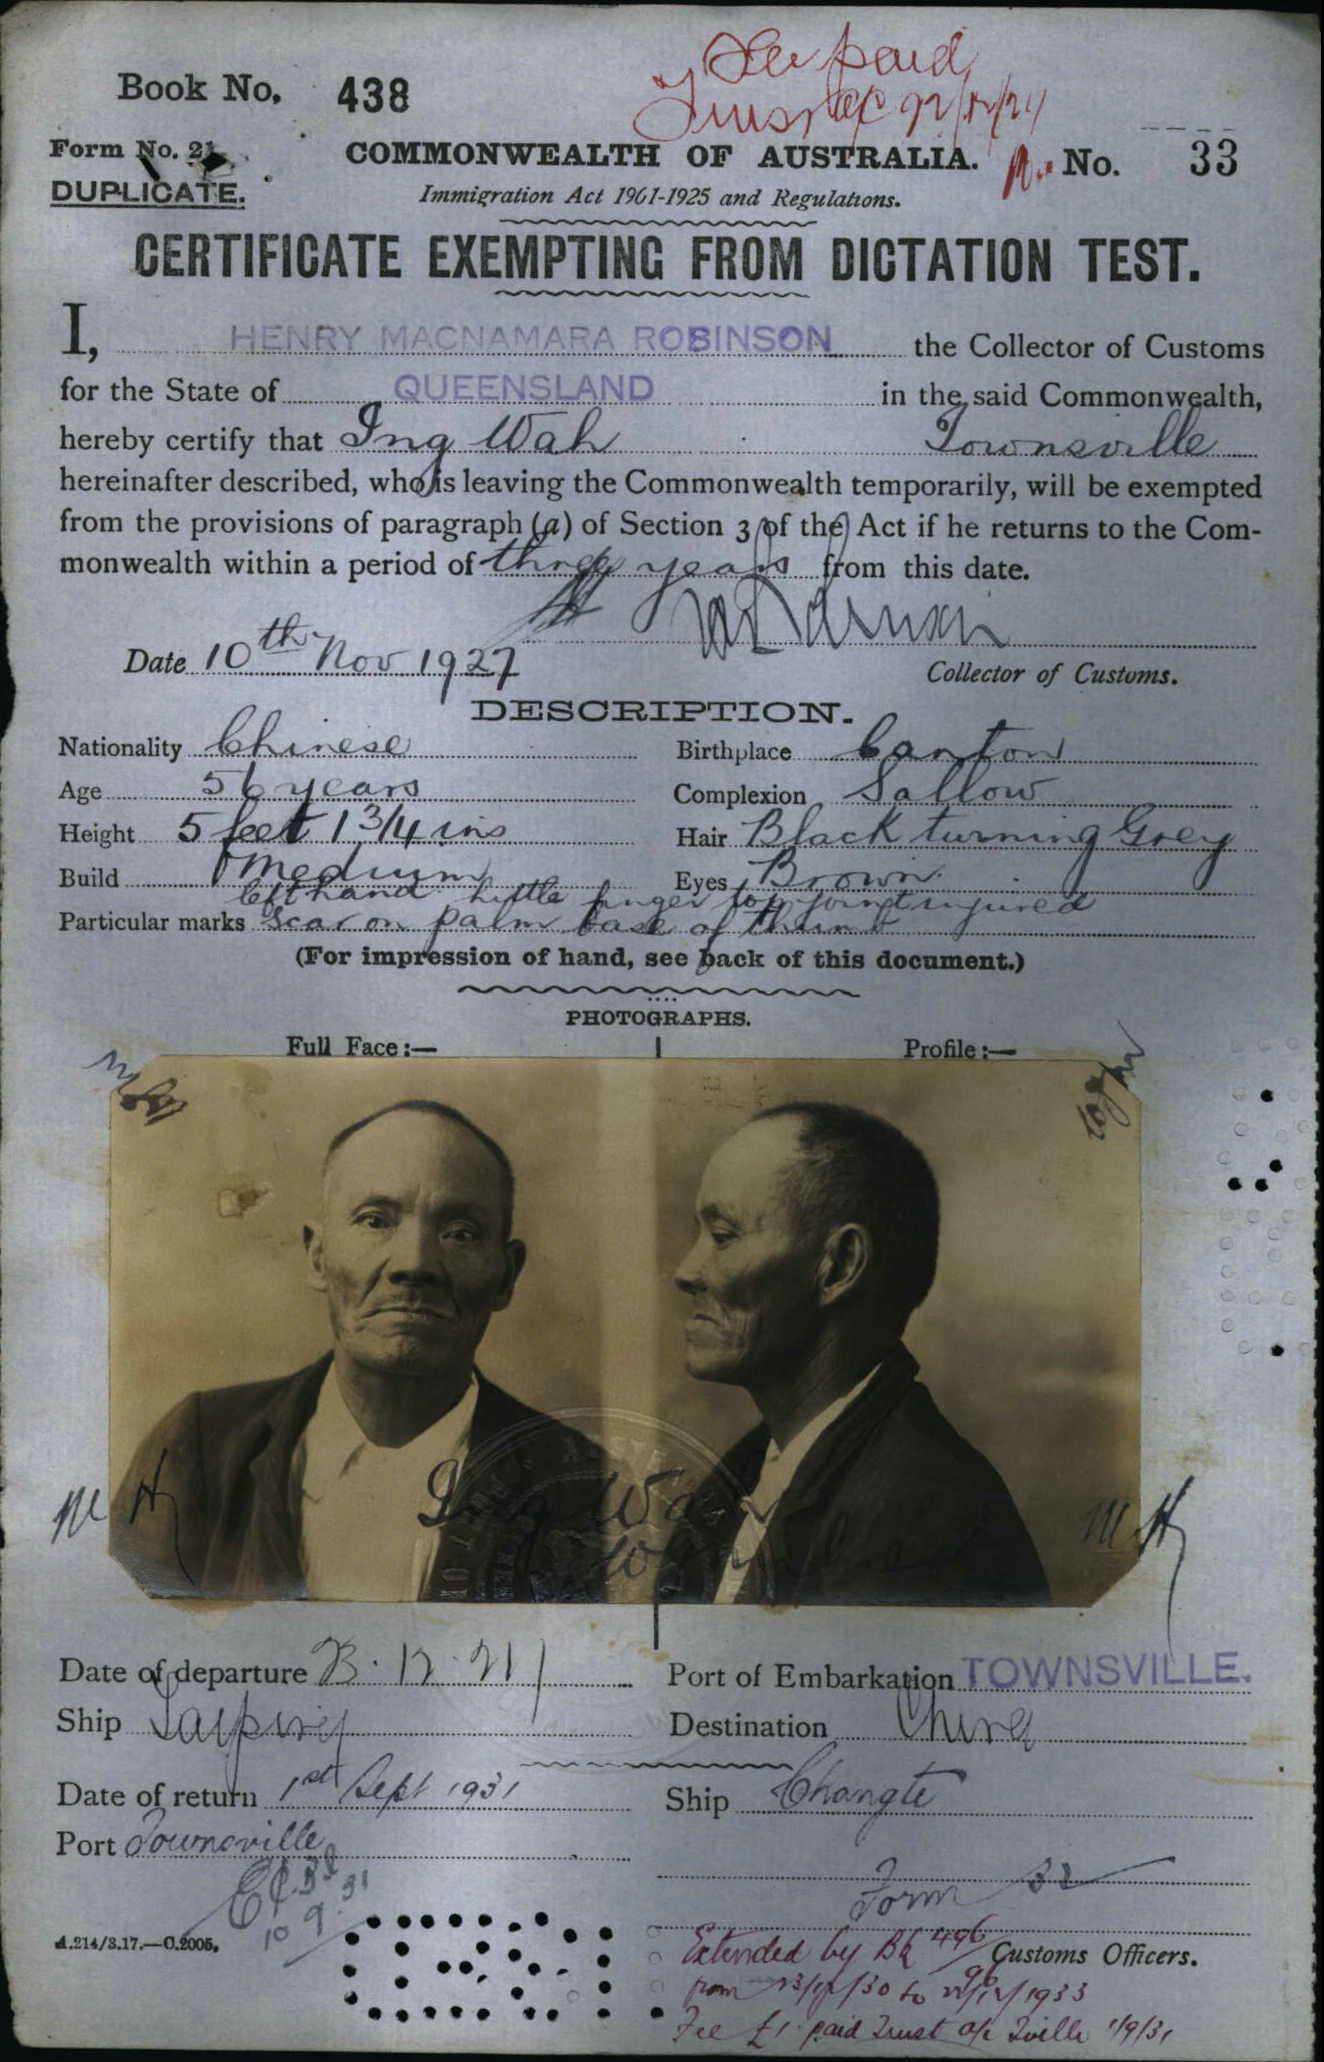 Book No. 438
Fee paid
Trust a/c
Form No. 21.
COMMONWEALTH OF AUSTRALIA.
No. 33
DUPLICATE.
Immigration Act 1901-1925 and Regulations.
CERTIFICATE EXEMPTING FROM DICTATION TEST.
I, HENRY MACNAMARA ROBINSON the Collector of Customs
for the State of QUEENSLAND in the said Commonwealth,
hereby certify that Ing Wah Townsville
hereinafter described, who is leaving the Commonwealth temporarily, will be exempted
from the provisions of paragraph (a) of Section 3 of the Act if he returns to the Com-
monwealth within a period of three years from this date.
Date 10th Nov 1927
Collector of Customs.
DESCRIPTION.
Nationality Chinese Birthplace Canton
Age 56 years Complexion Sallow
Height 5 feet 1 3/4 ins Hair Black turning Grey
Build Medium Eyes Brown
left hand little finger top joint injured
Particular marks Scar on palm base of thumb
(For impression of hand, see back of this document.)
PHOTOGRAPHS.
Full Face:— Profile:—
M H M H
Ing Wah
Date of departure Port of Embarkation TOWNSVILLE.
Ship Taiping Destination China
Date of return 1st Sept 1931 Ship Changte
Port Townsville
Form 32
10 9 31
A.214/3.17.—C.2005. Customs Officers.
Extended by Bk 496/96
from 23/12/30 to 22/12/1933
Fee £1 paid Trust a/c Tville 1/9/31